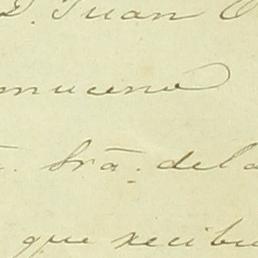 D. Juan
muceno
Sra. del
que recibi